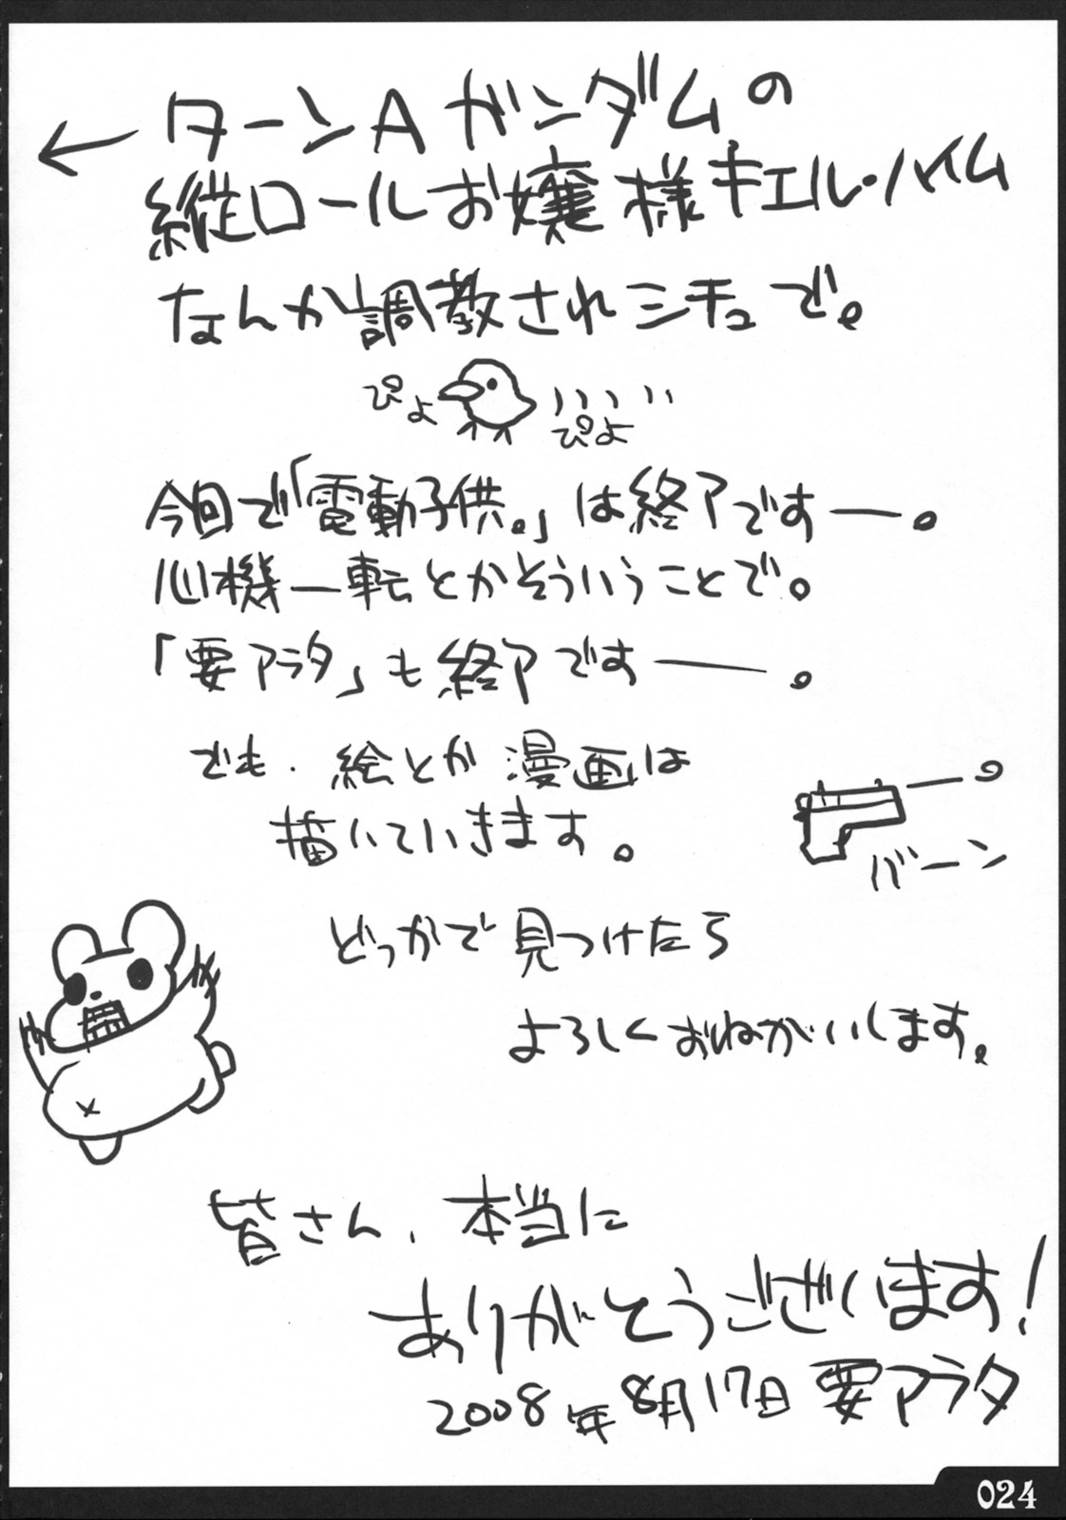 ← ターンAガンダムの
縦ロールお嬢様キエル・ハイム
なんか調教されシチュで。
ぴよ
ぴよ
今回で「電動子供。」は終了ですー。
心機一転とかそういうことで。
「要アラタ」も終了ですー。
でも、絵とか漫画は
描いていきます。
バーン
どっかで見つけたら
よろしくおねがいします。
皆さん、本当に
ありがとうございます！
2008年8月17日 要アラタ
024